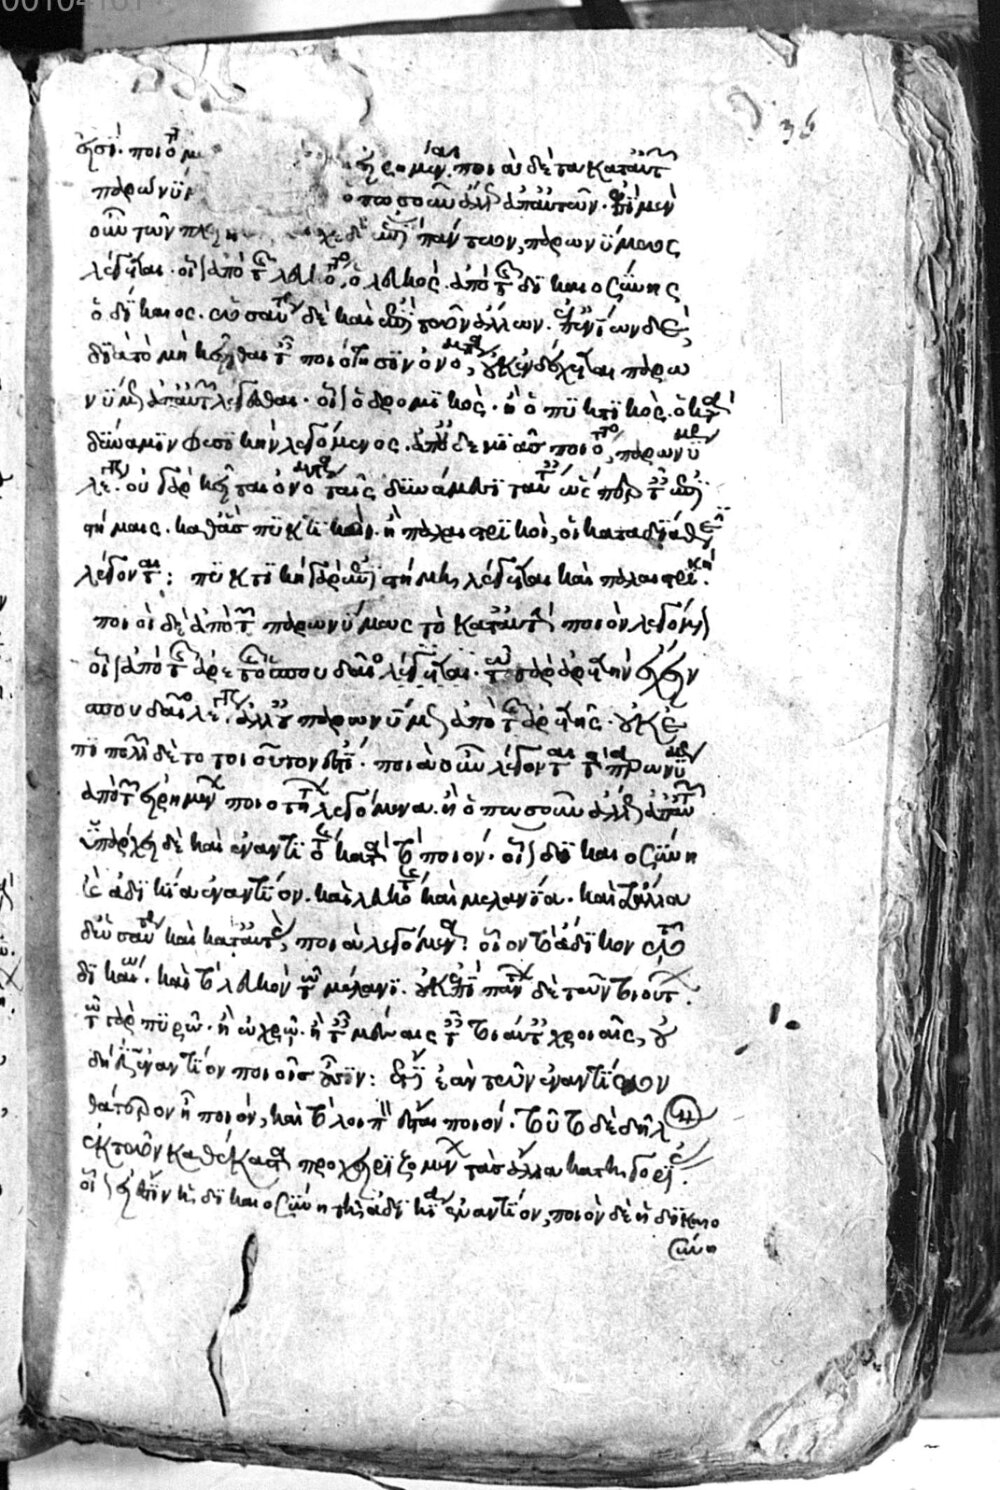 εἰσὶ· ποιότη μ αἱ εἰρημέναι. ποιὰ δὲ τὰ κατ' αὐτ
παρωνύμ ὁπωσοῦν ἄλλως ἀπ' αὐτῶν. ἐπὶ μὲν
οὖν τῶν πλ χεδὸν ἐπὶ πάντων, παρωνύμως
λέγεται. οἷον ἀπὸ τῆς λευκότητος, ὁ λευκός. ἀπὸ τῆς δικαιοσύνης
ὁ δίκαιος. ὡσαύτως δὲ καὶ ἐπὶ τῶν ἄλλων. ἐπ' ἐνίων δὲ,
διὰ τὸ μὴ κεῖσθαι ταῖς ποιότησιν ὀνόματα, οὐκ ἐνδέχεται παρω
νύμως ἀπ' αὐτῶν λέγεσθαι. οἷον ὁ δρομικὸς. ἢ ὁ πυκτικὸς. ὁ κατὰ
δύναμιν φυσικὴν λεγόμενος. ἀπ' οὐδεμιᾶς ποιότητος, παρωνύμως
λέγεται. οὐ γὰρ κεῖται ὀνόματα ταῖς δυνάμεσι ταύταις ὥσπερ ταῖς ἐπι
στήμαις. καθ' ἃς πυκτικοὶ. ἢ παλαιστρικοὶ, οἱ κατὰ διάθεσιν
λέγονται: πυκτικὴ γὰρ ἐπιστήμη λέγεται καὶ παλαιστρική.
ποιοὶ δὲ ἀπὸ τούτων παρωνύμως τὸ κατ' αὐτὰς ποιὸν λεγόμενον
οἷον ἀπὸ τῆς ἀρετῆς ὁ σπουδαῖος λέγεται. τῷ γὰρ ἀρετὴν ἔχειν
σπουδαῖος λέγεται. ἀλλ' οὐ παρωνύμως ἀπὸ τῆς ἀρετῆς. οὐκ ἐ
πὶ πολλῶν δὲ τὸ τοιοῦτον ἐστί. ποιὰ οὖν λέγονται τὰ παρωνύμως
ἀπὸ τῶν εἰρημένων ποιοτήτων λεγόμενα. ἢ ὁπωσοῦν ἄλλως ἀπ' αὐτῶν
ὑπάρχει δὲ καὶ ἐναντιότης κατὰ τὸ ποιόν. οἷον δικαιοσύνη
τε ἀδικία ἐναντίον. καὶ λευκότης καὶ μελανία. καὶ τἄλλα
δὲ ὡσαύτως καὶ κατ' αὐτὰς, ποιὰ λεγόμενα. οἷον τὸ ἄδικον τῷ
δικαίῳ. καὶ τὸ λευκὸν τῷ μέλανι. οὐκ ἐπὶ πάντων δὲ τοῦτο τοιοῦτον.
τῷ γὰρ πυρρῷ. ἢ ὠχρῷ. ἢ ταῖς μέσαις ταῖς τοιαύταις χροιαῖς, οὐ
δέν ἐστιν ἐναντίον ποιοῖς οὖσιν: ἔτι ἐὰν τῶν ἐναντίων
θάτερον ᾖ ποιόν, καὶ τὸ λοιπὸν ἔσται ποιόν. τοῦτο δὲ δῆλον
ἐκ τῶν καθ' ἕκαστα προχειριζομένῳ τὰς ἄλλας κατηγορίας.
οἷον εἰ ἔστιν ἡ δικαιοσύνη τῇ ἀδικίᾳ ἐναντίον, ποιὸν δὲ ἡ δικαιο
σύνη